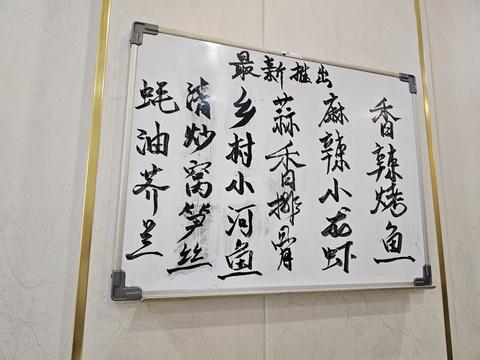 最新推出
香辣烤鱼
麻辣小龙虾
蒜香排骨
乡村小河鱼
清炒窝笋丝
蚝油芥兰